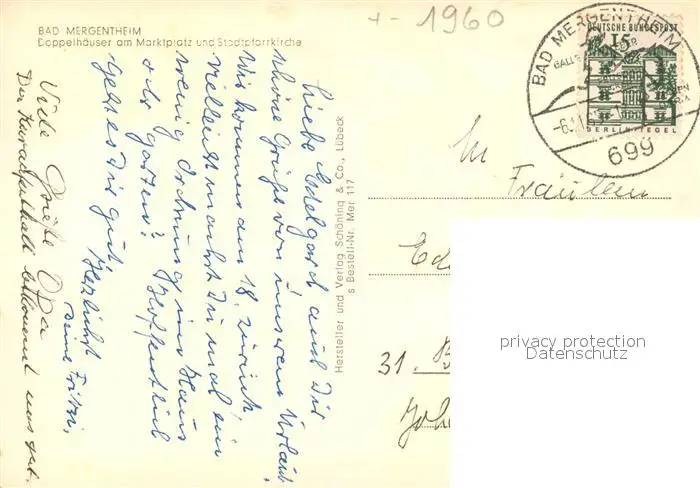 BAD MERGENTHEIM
Doppelhäuser am Marktplatz und Stadtpfarrkirche
1960
BAD MERGENTHEIM
699
DEUTSCHE BUNDESPOST
15
BERLIN-TEGEL
Hersteller und Verlag Schöning & Co., Lübeck
s Bestell-Nr. Mer 117
Liebe Edelgard auch Dir
schöne Grüße von unserem Urlaub.
Wir kommen am 18. zurück
vielleicht machst Du mal ein
wenig Ordnung im Haus
oder Garten? Hoffentlich
geht es Dir gut.
Herzlichst
Deine
Viele Grüße Opa
Der Kuraufenthalt bekommt uns gut.
Fräulein
31.
privacy protection
Datenschutz